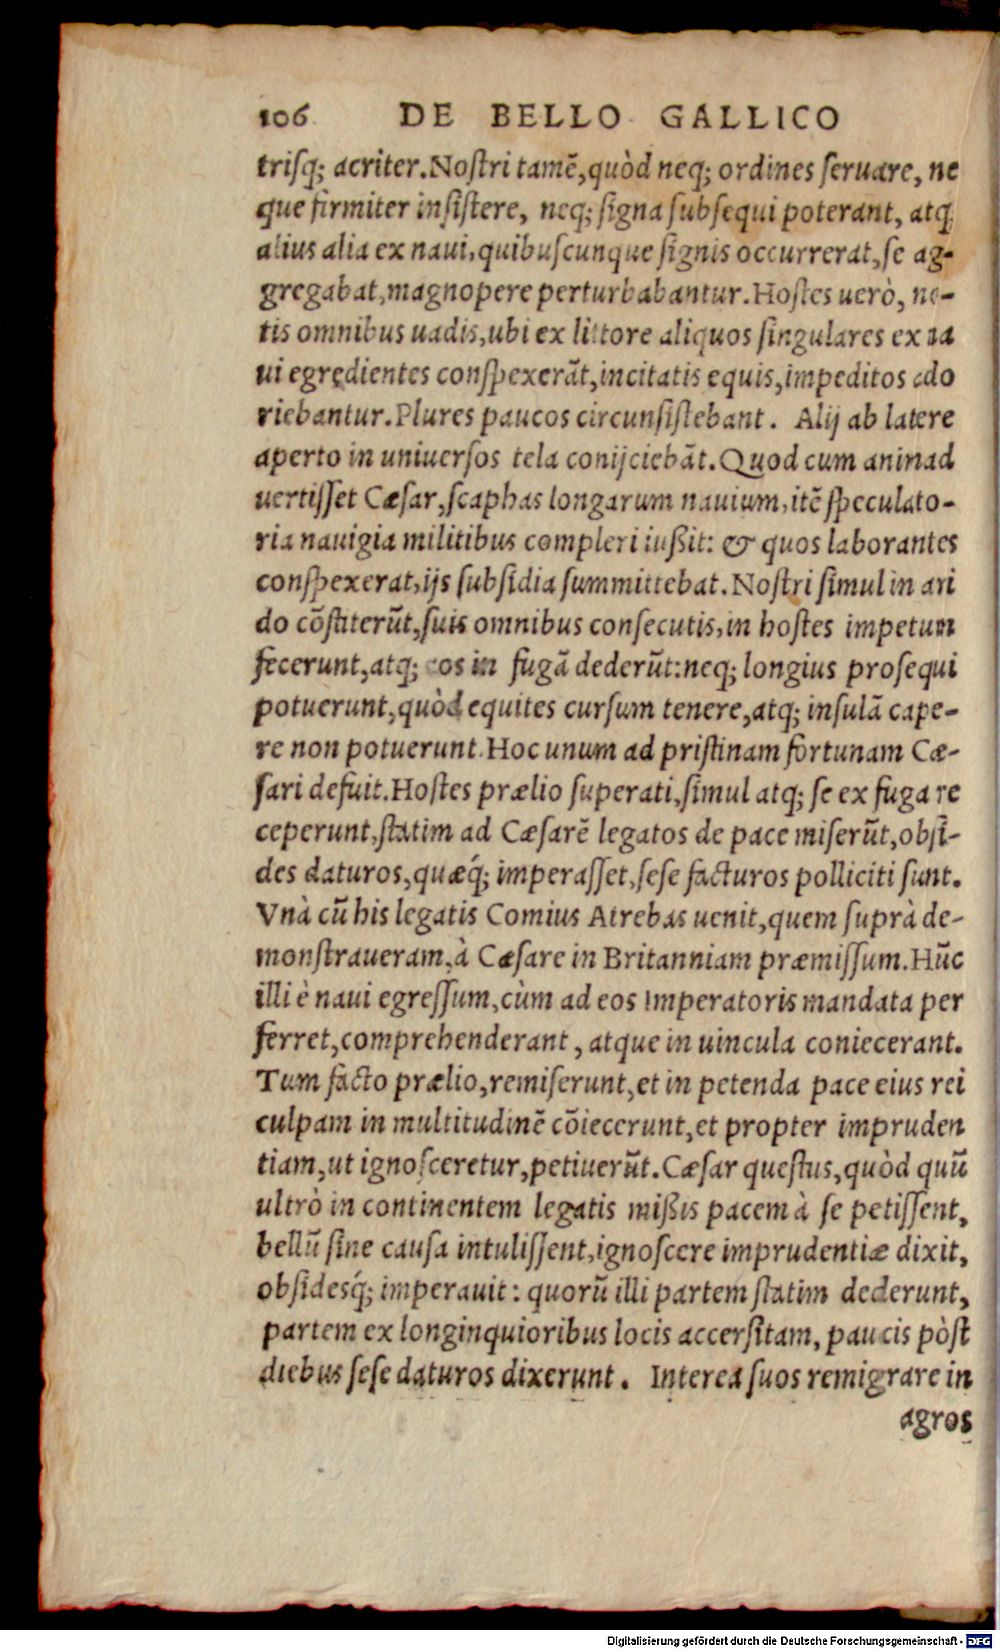 106 DE BELLO GALLICO
trisq; acriter. Noſtri tamē, quòd neq; ordines ſeruare, ne
que firmiter inſiſtere, neq; ſigna ſubſequi poterant, atq
alius alia ex naui, quibuſcunque ſignis occurrerat, ſe ag-
gregabat, magnopere perturbabantur. Hoſtes uerò, no-
tis omnibus uadis, ubi ex littore aliquos ſingulares ex na
ui egredientes conſpexerāt, incitatis equis, impeditos ado
riebantur. Plures paucos circunſiſtebant. Alij ab latere
aperto in uniuerſos tela conijciebāt. Quod cum animad
uertiſſet Cæſar, ſcaphas longarum nauium, itē ſpeculato-
ria nauigia militibus compleri iußit: & quos laborantes
conſpexerat, ijs ſubſidia ſummittebat. Noſtri ſimul in ari
do cōſtiterūt, ſuis omnibus conſecutis, in hoſtes impetum
fecerunt, atq; eos in fugā dederūt: neq; longius proſequi
potuerunt, quòd equites curſum tenere, atq; inſulā cape-
re non potuerunt. Hoc unum ad priſtinam fortunam Cæ-
ſari defuit. Hoſtes prælio ſuperati, ſimul atq; ſe ex fuga re
ceperunt, ſtatim ad Cæſarē legatos de pace miſerūt, obſi-
des daturos, quæq́; imperaſſet, ſeſe facturos polliciti ſunt.
Vnà cū his legatis Comius Atrebas uenit, quem ſuprà de-
monſtraueram, à Cæſare in Britanniam præmiſſum. Hūc
illi è naui egreſſum, cùm ad eos Imperatoris mandata per
ferret, comprehenderant, atque in uincula coniecerant.
Tum facto prælio, remiſerunt, et in petenda pace eius rei
culpam in multitudinē cōiecerunt, et propter impruden
tiam, ut ignoſceretur, petiuerūt. Cæſar queſtus, quòd quū
ultrò in continentem legatis mißis pacem à ſe petiſſent,
bellū ſine cauſa intuliſſent, ignoſcere imprudentiæ dixit,
obſidesq́; imperauit: quorū illi partem ſtatim dederunt,
partem ex longinquioribus locis accerſitam, paucis pòſt
diebus ſeſe daturos dixerunt. Interea ſuos remigrare in
agros
Digitalisierung gefördert durch die Deutsche Forschungsgemeinschaft - DFG